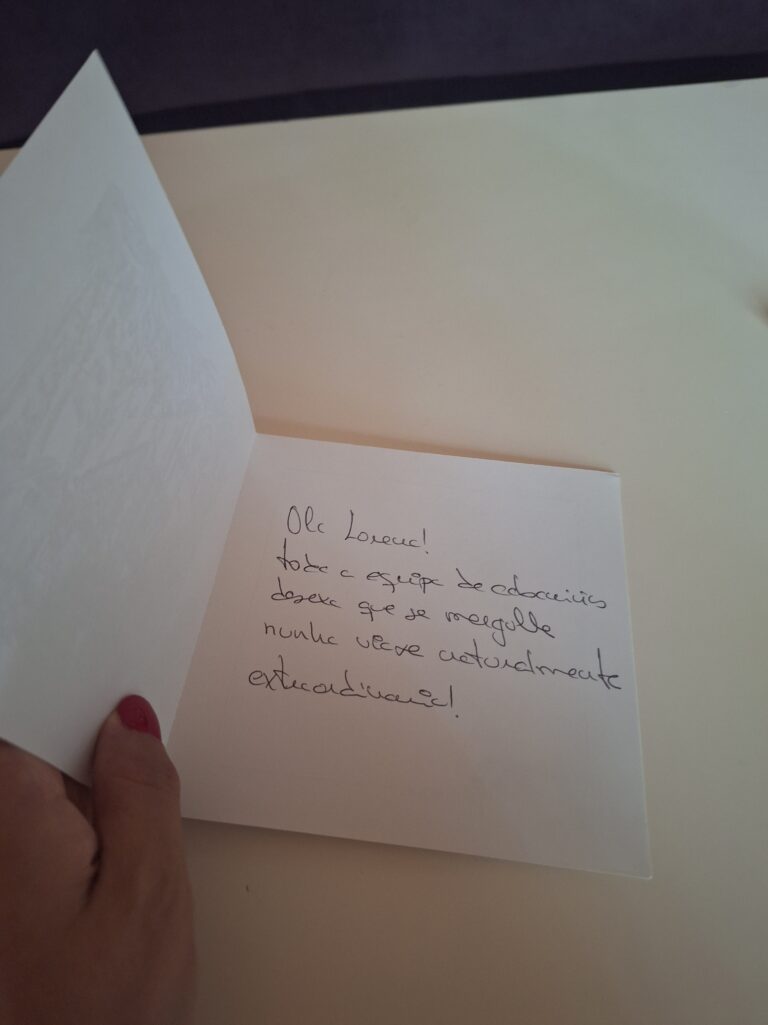 Ola Lorena!
toda a equipa de
desexa que se mergulle
nunha viaxe naturalmente
extraordinaria!